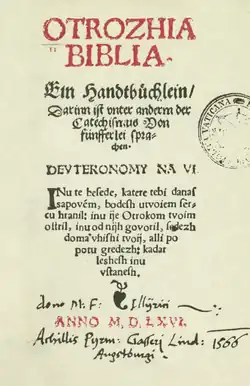 OTROZHIA
BIBLIA.
Ein Handtbüchlein/
Darinn ist vnter anderm der
Catechismus Von
fünfferlei spra-
chen.
DEVTERONOMY NA VI.
INu te besede, katere tebi danas
sapovém, bodesh utvoiem ser-
cu hranil: inu ije Otrokom tvoim
ostril, inu od nijh govoril, ſedezh
doma vhishi tvoij, alli po
potu gredezh: kadar
leshesh inu
vstanesh.
dono M. F. Illyrici
ANNO M. D. LXVI.
Achillis Pyrm: Gasseri Lind: 1566
Augsburgi
VATICANA